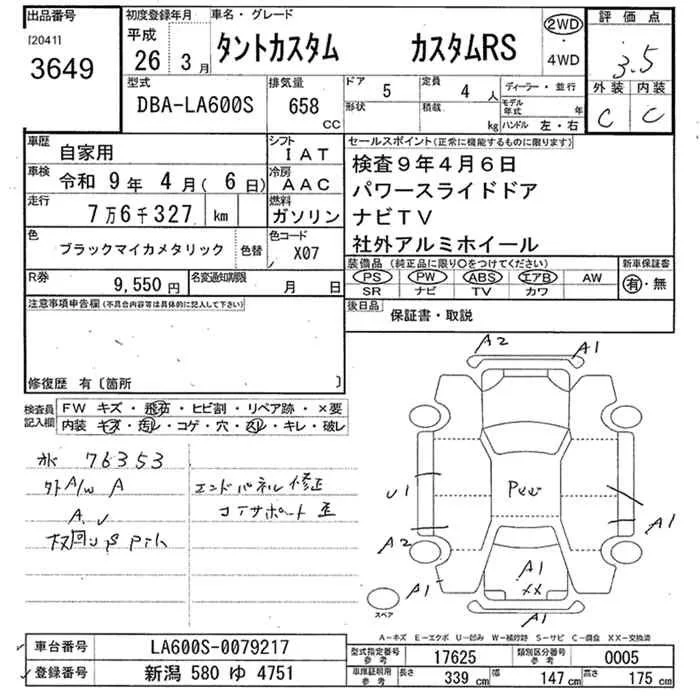 出品番号
[2041]
3649
初度登録年月
平成
26 年 3 月
車名・グレード
タントカスタム カスタムRS
2WD
・
4WD
評価点
3.5
外装 内装
C C
型式
DBA-LA600S
排気量
658
CC
ドア 5
形状
定員 4 人
積載 kg
ディーラー・並行
モデル年式 年
ハンドル 左・右
車歴 自家用
シフト IAT
車検 令和 9年 4月( 6日)
冷房 AAC
走行 7万6千327 km
燃料 ガソリン
色 ブラックマイカメタリック 色替
色コード X07
R券 9,550円
名変通知期限 月 日
セールスポイント(正常に機能するものに限ります)
検査9年4月6日
パワースライドドア
ナビTV
社外アルミホイール
装備品(純正品に限り○をつけてください)
PS PW ABS エアB AW
SR ナビ TV カワ
新車保証書
有・無
後日品 保証書・取説
注意事項申告欄(不具合内容等は具体的に記入して下さい)
修復歴 有〔箇所 〕
検査員記入欄
FW キズ・飛石・ヒビ割・リペア跡・×要
内装 キズ・汚レ・コゲ・穴・スレ・キレ・破レ
76353
外A/W A
A.U
エンドパネル修正
コアサポート歪
A2
A1
U1
A2
A1
A1
A1
XX
A1
スペア
A-キズ E-エクボ U-凹み W-補修跡 S-サビ C-腐食 XX-交換済
車台番号 LA600S-0079217
登録番号 新潟 580 ゆ 4751
型式指定番号 参考 17625
類別区分番号 参考 0005
車庫証明用 参考 長さ 339 cm 幅 147 cm 高さ 175 cm